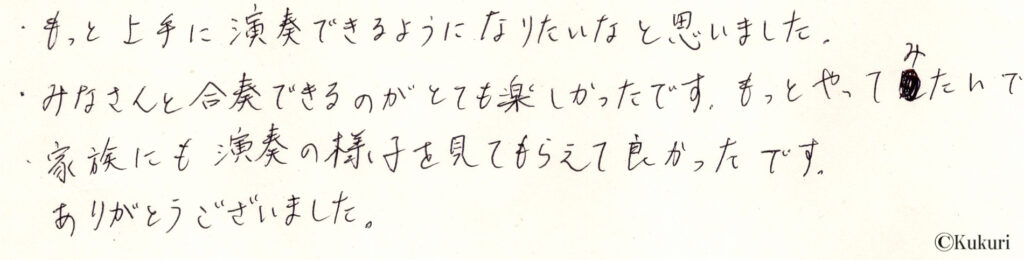 ・もっと上手に演奏できるようになりたいなと思いました。
・みなさんと合奏できるのがとても楽しかったです。もっとやってみたいで
・家族にも演奏の様子を見てもらえて良かったです。
ありがとうございました。
©Kukuri